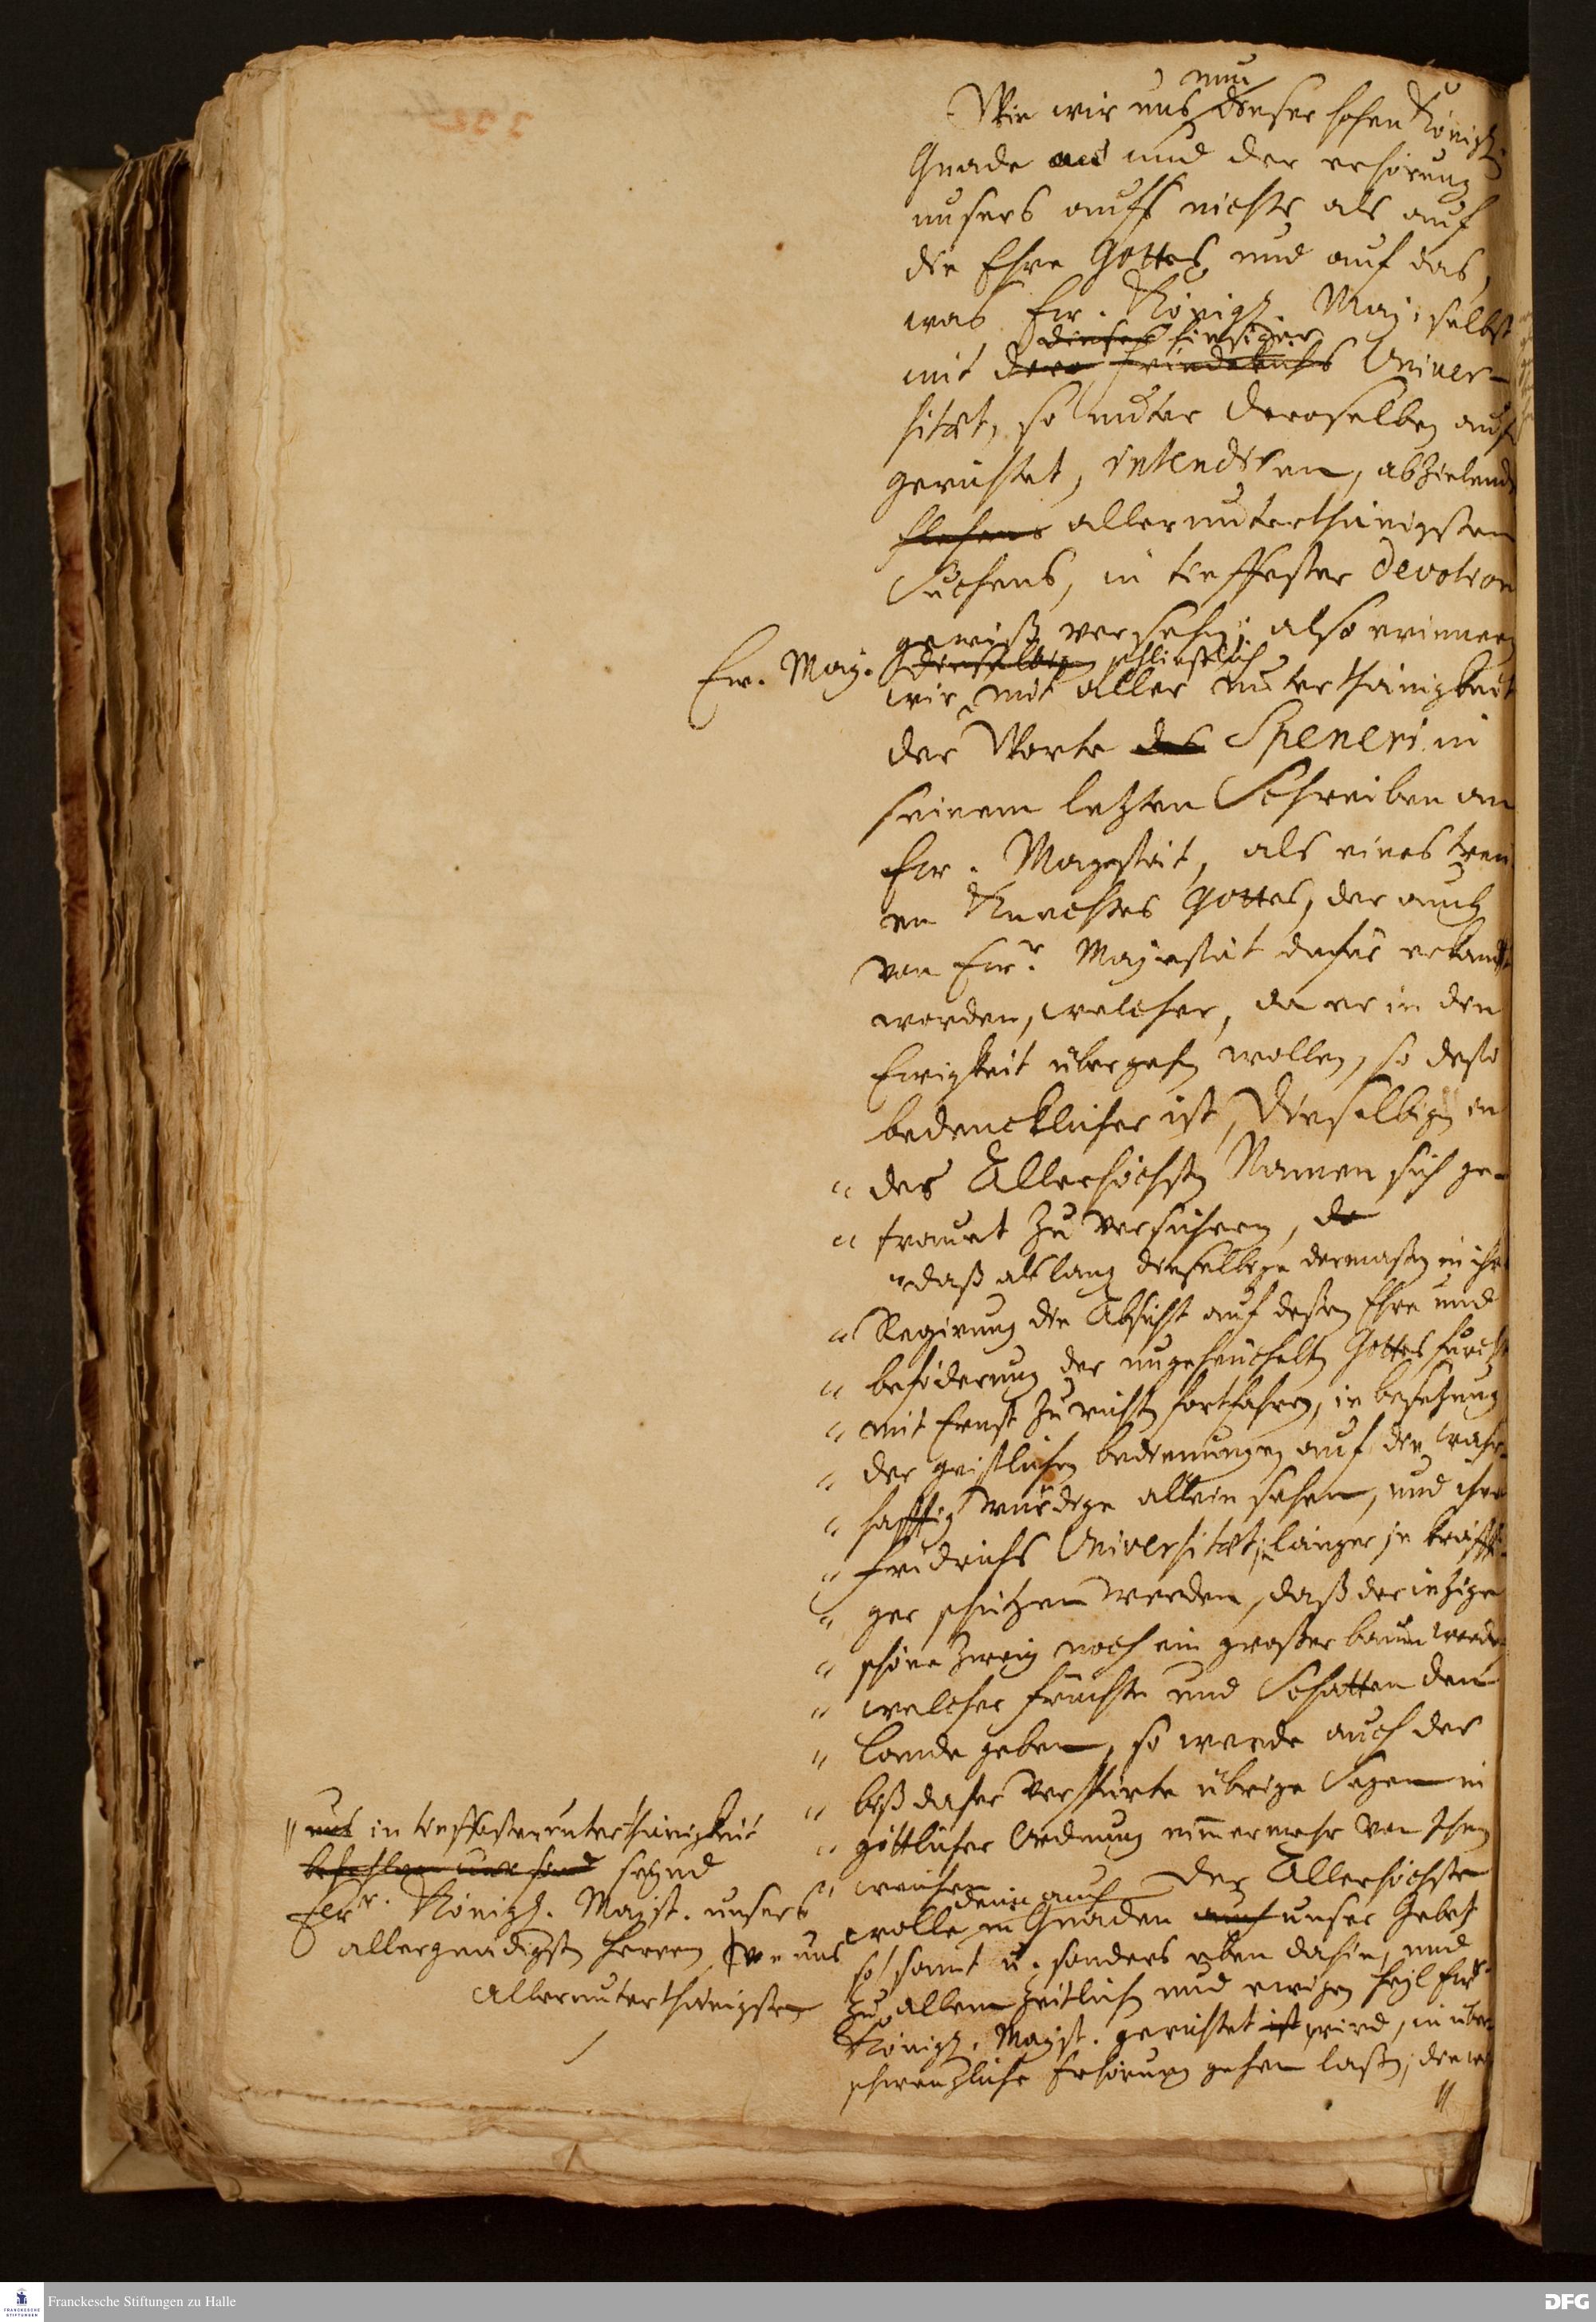 nun
Wie wir uns dieser hohen Königl.
Gnade und der erhörung
unsers auffs nichts als auf
die Ehre Gottes und auf das,
was Ew. Königl. Maj. selbst
dieser hiesiger
mit dero Friedrichs Univer-
sitæt, so unter Deroselben auf
gerichtet, intendiren, abzielend
flehens allerunterthänigsten
Suchens, in tieffester Devotion
gewiß versehen; also erinnern
Ew. Maj. dieselbige schließlich
wir mit aller unterthänigkeit
der Worte des Speneri in
seinem letzten Schreiben an
Ew. Majestät, als eines treu
en Knechtes Gottes, der auch
von Ewr. Majestät dafür erkandt
worden, welcher, da er in die
Ewigkeit übergehen wollen, so desto
bedencklicher ist, Dieselbige in
" des Allerhöchsten Namen sich ge-
" trauet zu versichern, da
" daß als lang dieselbige dermaßen in ihr
" Regierung die Absicht auf deßen Ehre und
" beföderung der ungeheuchelten Gottesfurcht
" mit Ernst zu richten fortfahren, in besetzung
" der geistlichen bedienungen auf die wahr-
" hafftig würdige allein sehen, und ihre
" Fridrichs Universitæt, je länger je kräfft-
" ger schützen werden, daß der ietzige
" schöne Zweig noch ein großer baum werde
" welcher früchte und Schatten dem
" Lande geben, so werde auch der
" biß daher verspürte übrige Segen in
" göttlicher Ordnung nimmermehr von Ihnen
" weichen. Der Allerhöchste
denn auch
wolle in Gnaden auch unser Gebet
so samt u. sonders eben dahin, und
zu allem zeitlichen und ewigen heyl Ewr.
Königl. Majst. gerichtet ist wird, in über
schwenglicher Erhörung gehen laßen, die wir
//
// uns in tieffester unterthänigkeit
befehlen und sind seynd
Ewr. Königl. Majst. unsers
allergnädigsten Herren
allerunterthänigsten
Franckesche Stiftungen zu Halle
DFG